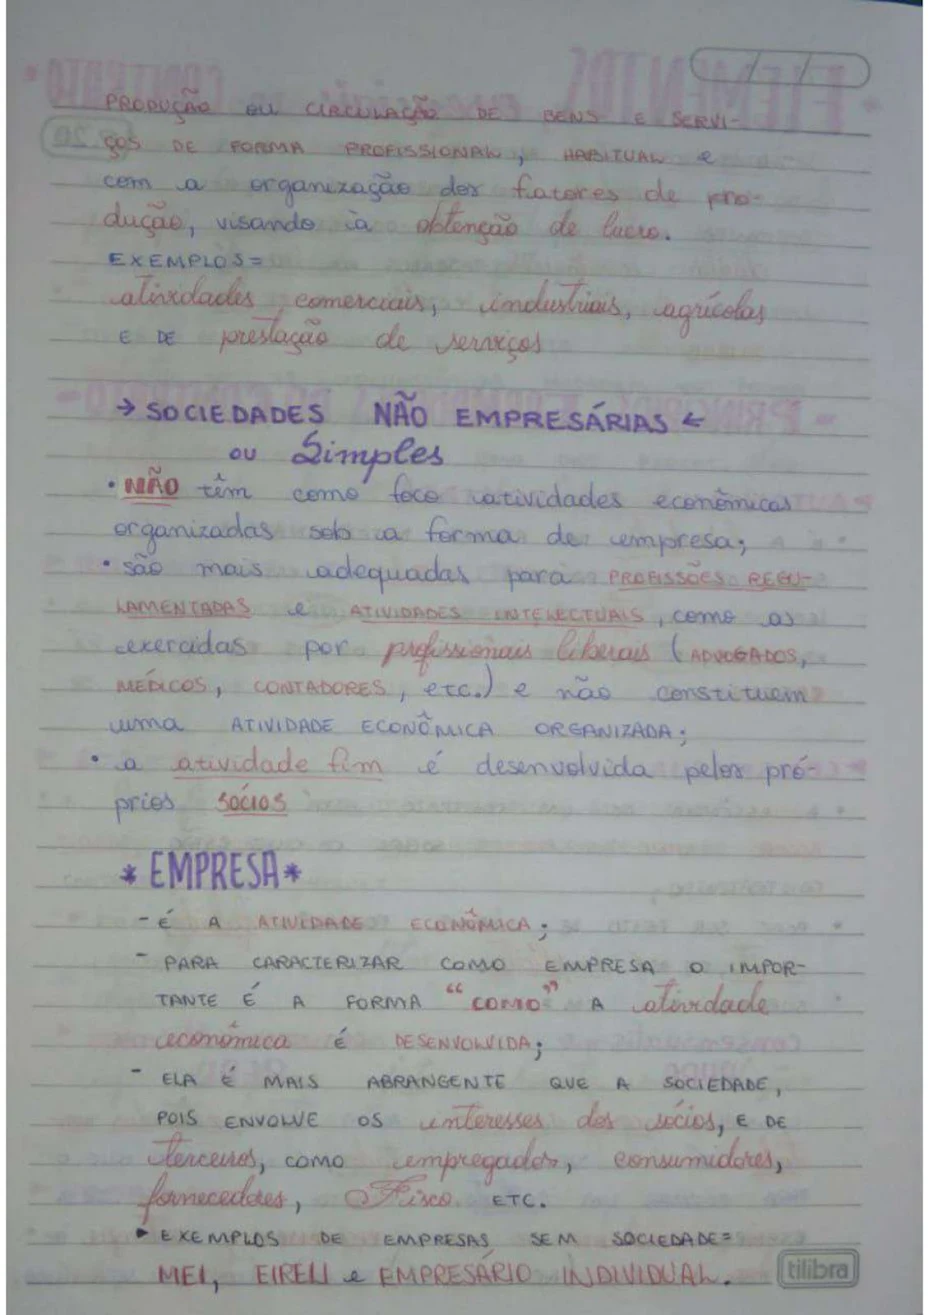 PRODUÇÃO OU CIRCULAÇÃO DE BENS E SERVI-
ÇOS DE FORMA PROFISSIONAL, HABITUAL e
com a organização dos fatores de pro-
dução, visando à obtenção de lucro.
EXEMPLOS=
atividades comerciais, industriais, agrícolas
E DE prestação de serviços
→ SOCIEDADES NÃO EMPRESÁRIAS ←
OU Simples
• NÃO têm como foco atividades econômicas
organizadas sob a forma de empresa;
• são mais adequadas para PROFISSÕES REGU-
LAMENTADAS e ATIVIDADES INTELECTUAIS, como as
exercidas por profissionais liberais (ADVOGADOS,
MÉDICOS, CONTADORES, etc.) e não constituem
uma ATIVIDADE ECONÔMICA ORGANIZADA;
• a atividade fim é desenvolvida pelos pró-
prios SÓCIOS
* EMPRESA *
- É A ATIVIDADE ECONÔMICA;
- PARA CARACTERIZAR COMO EMPRESA O IMPOR-
TANTE É A FORMA "COMO" A atividade
econômica é DESENVOLVIDA;
- ELA É MAIS ABRANGENTE QUE A SOCIEDADE,
POIS ENVOLVE OS interesses dos sócios, E DE
terceiros, COMO empregados, consumidores,
fornecedores, O Fisco ETC.
► EXEMPLOS DE EMPRESAS SEM SOCIEDADE=
MEI, EIRELI e EMPRESÁRIO INDIVIDUAL.
tilibra